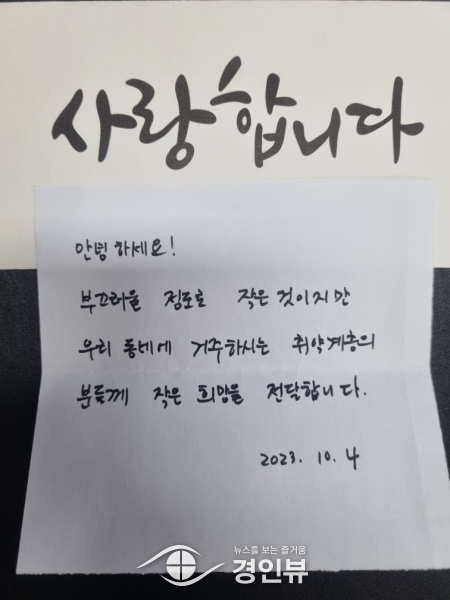 사랑합니다
안녕하세요!
부끄러울 정도로 작은 것이지만
우리 동네에 거주하시는 취약계층의
분들께 작은 희망을 전달합니다.
2023. 10. 4
뉴스를 보는 즐거움
경인뷰